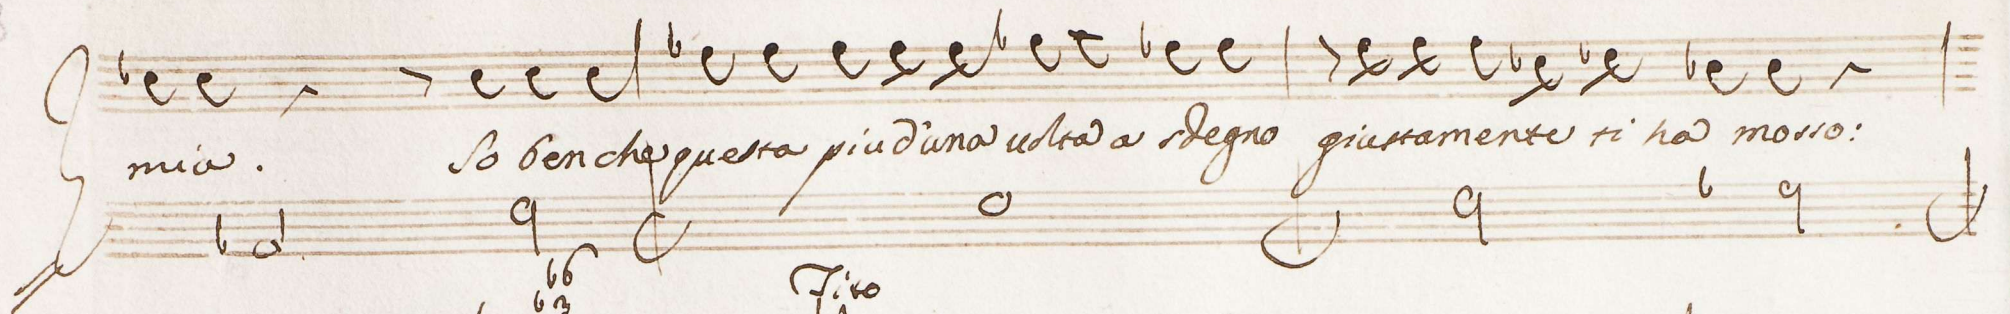 mia. So ben che questa piu d'una uolta a sdegno giustamente ti ha mosso:
b6
b3
Tito